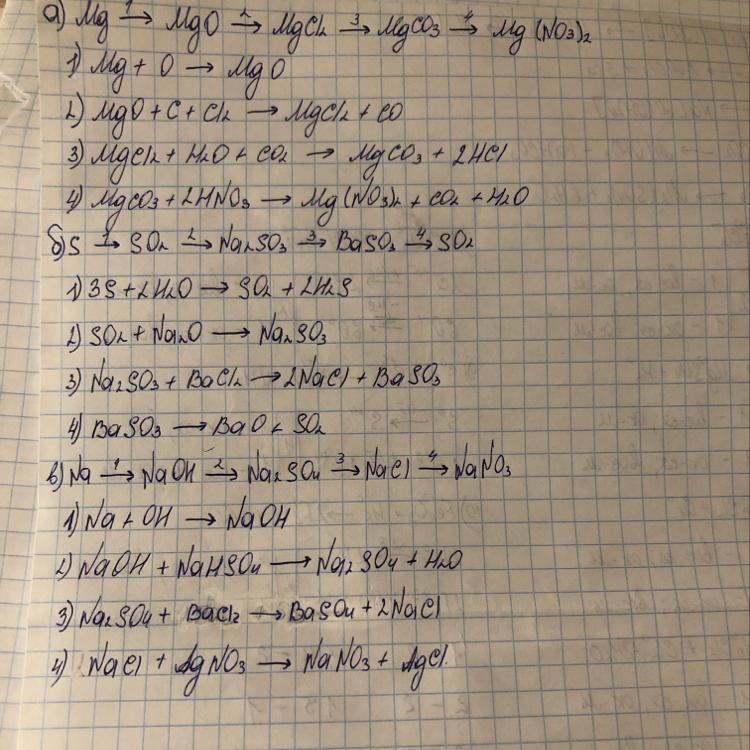 а) Mg 1→ MgO 2→ MgCl2 3→ MgCO3 4→ Mg(NO3)2
1) Mg + O → MgO
2) MgO + C + Cl2 → MgCl2 + CO
3) MgCl2 + H2O + CO2 → MgCO3 + 2HCl
4) MgCO3 + 2HNO3 → Mg(NO3)2 + CO2 + H2O
б) S 1→ SO2 2→ Na2SO3 3→ BaSO3 4→ SO2
1) 3S + 2H2O → SO2 + 2H2S
2) SO2 + Na2O → Na2SO3
3) Na2SO3 + BaCl2 → 2NaCl + BaSO3
4) BaSO3 → BaO + SO2
в) Na 1→ NaOH 2→ Na2SO4 3→ NaCl 4→ NaNO3
1) Na + OH → NaOH
2) NaOH + NaHSO4 → Na2SO4 + H2O
3) Na2SO4 + BaCl2 → BaSO4 + 2NaCl
4) NaCl + AgNO3 → NaNO3 + AgCl.